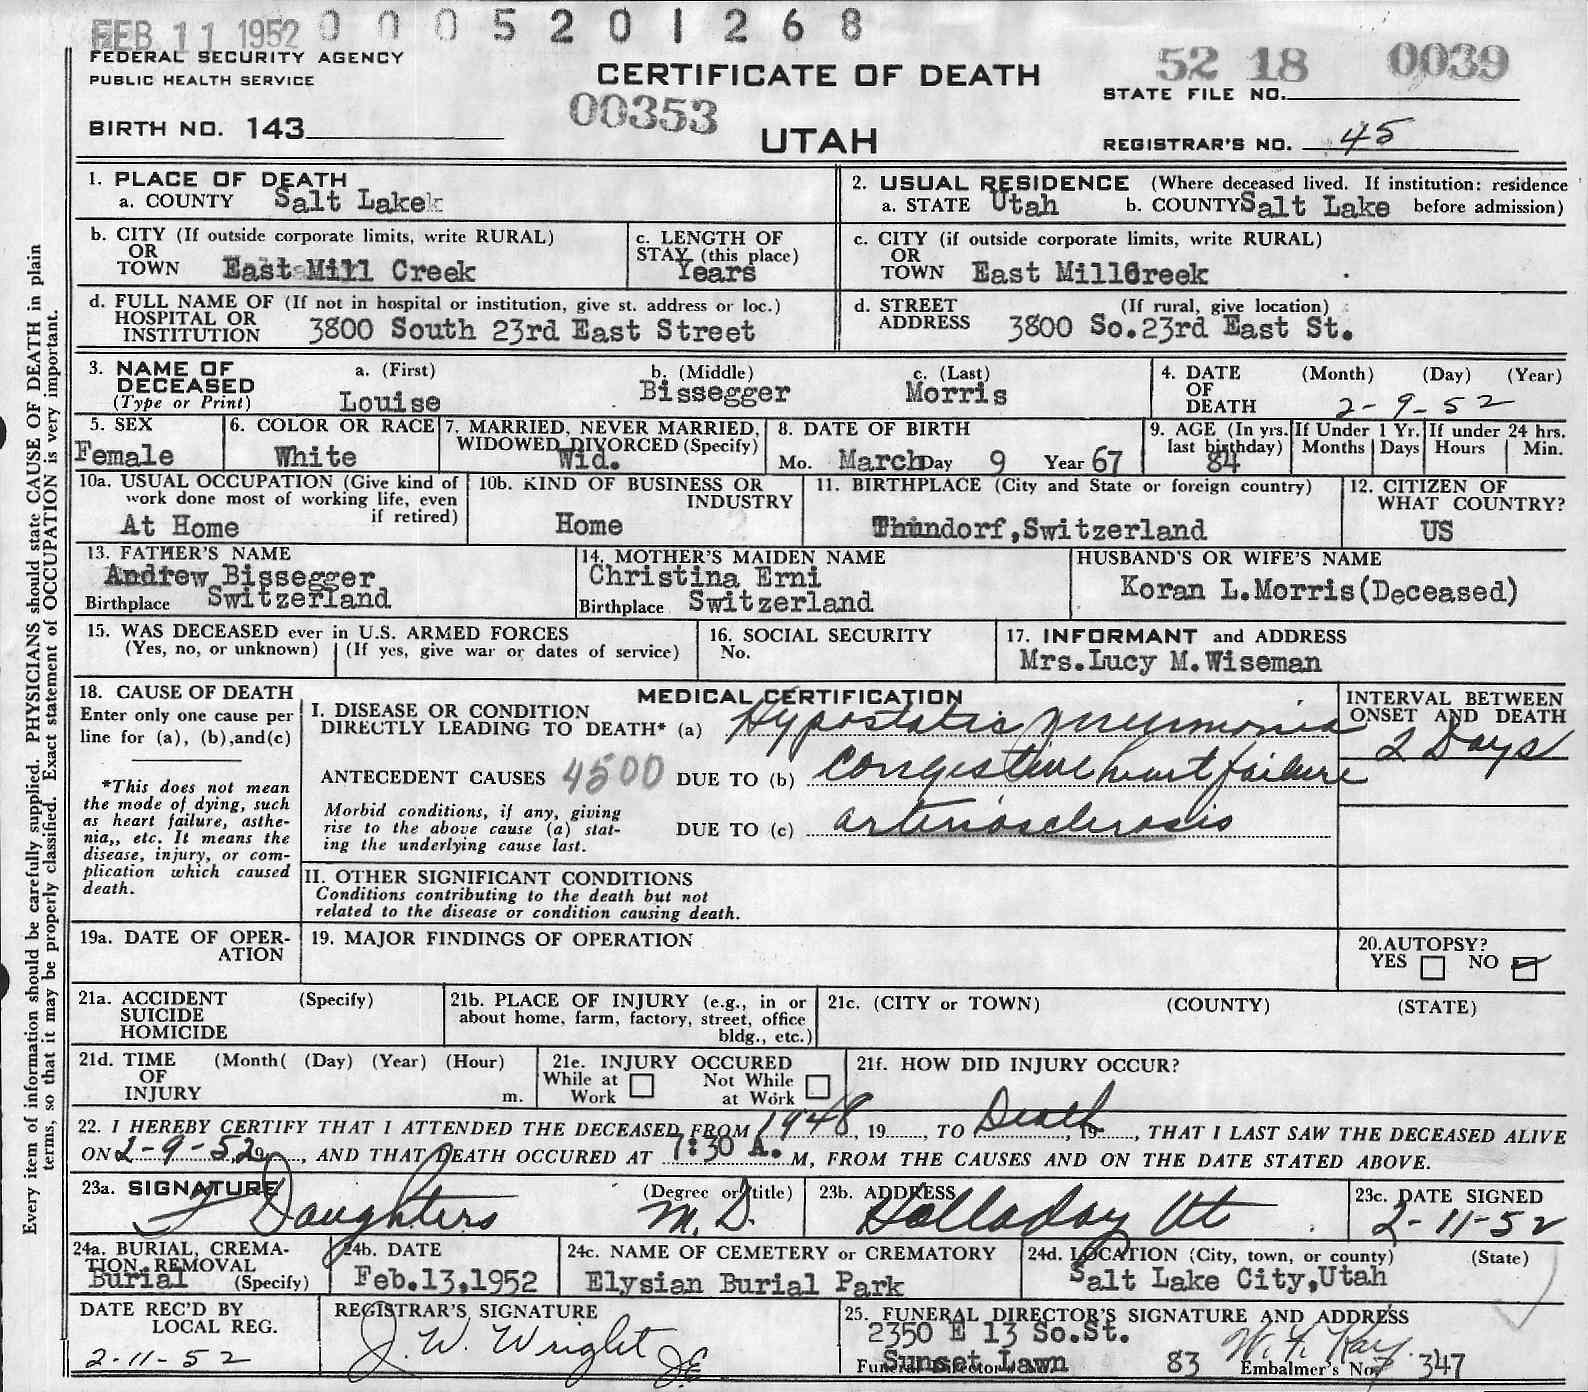 FEB 11 1952 0005201268
FEDERAL SECURITY AGENCY
PUBLIC HEALTH SERVICE
CERTIFICATE OF DEATH
52 18 0039
STATE FILE NO.
00353
BIRTH NO. 143
UTAH
REGISTRAR'S NO. 45
Every item of information should be carefully supplied. PHYSICIANS should state CAUSE OF DEATH in plain
terms, so that it may be properly classified. Exact statement of OCCUPATION is very important.
1. PLACE OF DEATH
a. COUNTY Salt Lake
2. USUAL RESIDENCE (Where deceased lived. If institution: residence
a. STATE Utah b. COUNTY Salt Lake before admission)
b. CITY (If outside corporate limits, write RURAL)
OR
TOWN East Mill Creek
c. LENGTH OF
STAY (this place)
Years
c. CITY (if outside corporate limits, write RURAL)
OR
TOWN East MillCreek
d. FULL NAME OF (If not in hospital or institution, give st. address or loc.)
HOSPITAL OR
INSTITUTION 3800 South 23rd East Street
d. STREET (If rural, give location)
ADDRESS 3800 So.23rd East St.
3. NAME OF
DECEASED
(Type or Print)
a. (First)
Louise
b. (Middle)
Bissegger
c. (Last)
Morris
4. DATE (Month) (Day) (Year)
OF
DEATH 2-9-52
5. SEX
Female
6. COLOR OR RACE
White
7. MARRIED, NEVER MARRIED,
WIDOWED DIVORCED (Specify)
Wid.
8. DATE OF BIRTH
Mo. March Day 9 Year 67
9. AGE (In yrs.
last birthday)
84
If Under 1 Yr.
Months Days
If under 24 hrs.
Hours Min.
10a. USUAL OCCUPATION (Give kind of
work done most of working life, even
if retired)
At Home
10b. KIND OF BUSINESS OR
INDUSTRY
Home
11. BIRTHPLACE (City and State or foreign country)
Thundorf,Switzerland
12. CITIZEN OF
WHAT COUNTRY?
US
13. FATHER'S NAME
Andrew Bissegger
Birthplace Switzerland
14. MOTHER'S MAIDEN NAME
Christina Erni
Birthplace Switzerland
HUSBAND'S OR WIFE'S NAME
Koran L.Morris(Deceased)
15. WAS DECEASED ever in U.S. ARMED FORCES
(Yes, no, or unknown) (If yes, give war or dates of service)
16. SOCIAL SECURITY
No.
17. INFORMANT and ADDRESS
Mrs.Lucy M.Wiseman
18. CAUSE OF DEATH
Enter only one cause per
line for (a), (b),and(c)
*This does not mean
the mode of dying, such
as heart failure, asthe-
nia,, etc. It means the
disease, injury, or com-
plication which caused
death.
MEDICAL CERTIFICATION
I. DISEASE OR CONDITION
DIRECTLY LEADING TO DEATH* (a) Hypostatic pneumonia
ANTECEDENT CAUSES 4500 DUE TO (b) congestive heart failure
Morbid conditions, if any, giving
rise to the above cause (a) stat-
ing the underlying cause last.
DUE TO (c) arteriosclerosis
INTERVAL BETWEEN
ONSET AND DEATH
2 Days
II. OTHER SIGNIFICANT CONDITIONS
Conditions contributing to the death but not
related to the disease or condition causing death.
19a. DATE OF OPER-
ATION
19. MAJOR FINDINGS OF OPERATION
20.AUTOPSY?
YES NO
21a. ACCIDENT (Specify)
SUICIDE
HOMICIDE
21b. PLACE OF INJURY (e.g., in or
about home, farm, factory, street, office
bldg., etc.)
21c. (CITY or TOWN) (COUNTY) (STATE)
21d. TIME (Month( (Day) (Year) (Hour)
OF
INJURY m.
21e. INJURY OCCURED
While at Not While
Work at Work
21f. HOW DID INJURY OCCUR?
22. I HEREBY CERTIFY THAT I ATTENDED THE DECEASED FROM 1948, 19....., TO Death, 19....., THAT I LAST SAW THE DECEASED ALIVE
ON 2-9-52, 19....., AND THAT DEATH OCCURED AT 7:30 A. M, FROM THE CAUSES AND ON THE DATE STATED ABOVE.
23a. SIGNATURE (Degree or title)
Daughters M.D.
23b. ADDRESS
Holladay Ut
23c. DATE SIGNED
2-11-52
24a. BURIAL, CREMA-
TION, REMOVAL
Burial (Specify)
24b. DATE
Feb.13,1952
24c. NAME OF CEMETERY or CREMATORY
Elysian Burial Park
24d. LOCATION (City, town, or county) (State)
Salt Lake City,Utah
DATE REC'D BY
LOCAL REG.
2-11-52
REGISTRAR'S SIGNATURE
J. W. Wright
25. FUNERAL DIRECTOR'S SIGNATURE AND ADDRESS
2350 E 13 So.St.
Sunset Lawn 83 Embalmer's No. 347